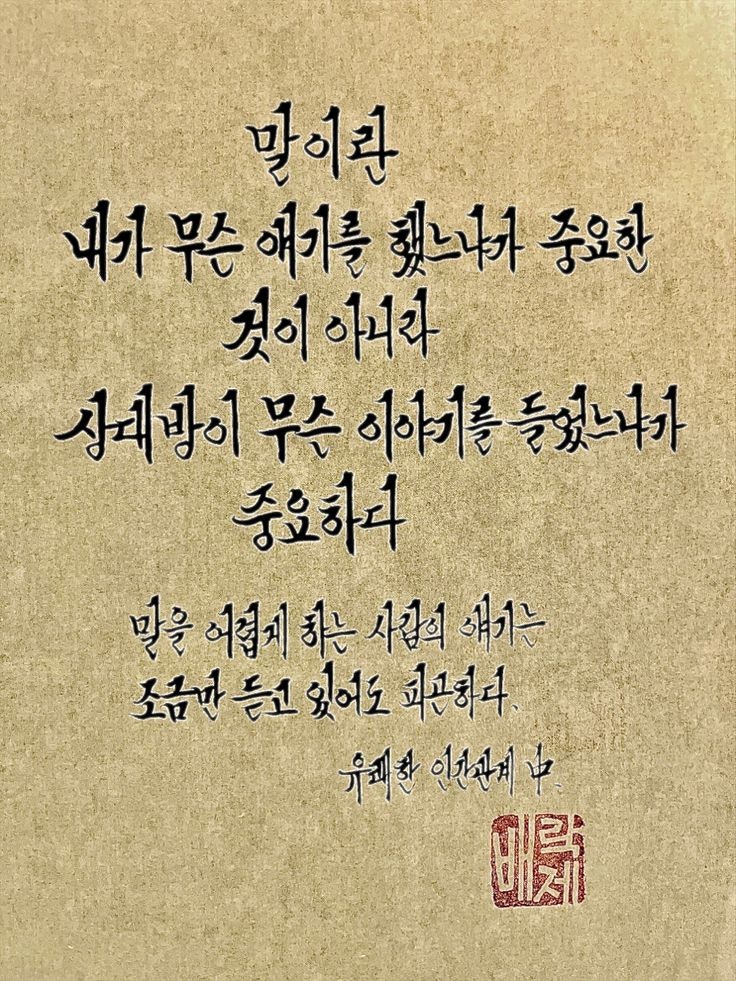 말이란
내가 무슨 얘기를 했느냐가 중요한
것이 아니라
상대방이 무슨 이야기를 들었느냐가
중요하다
말을 어렵게 하는 사람의 얘기는
조금만 듣고 있어도 피곤하다.
유쾌한 인간관계 中.
매락제